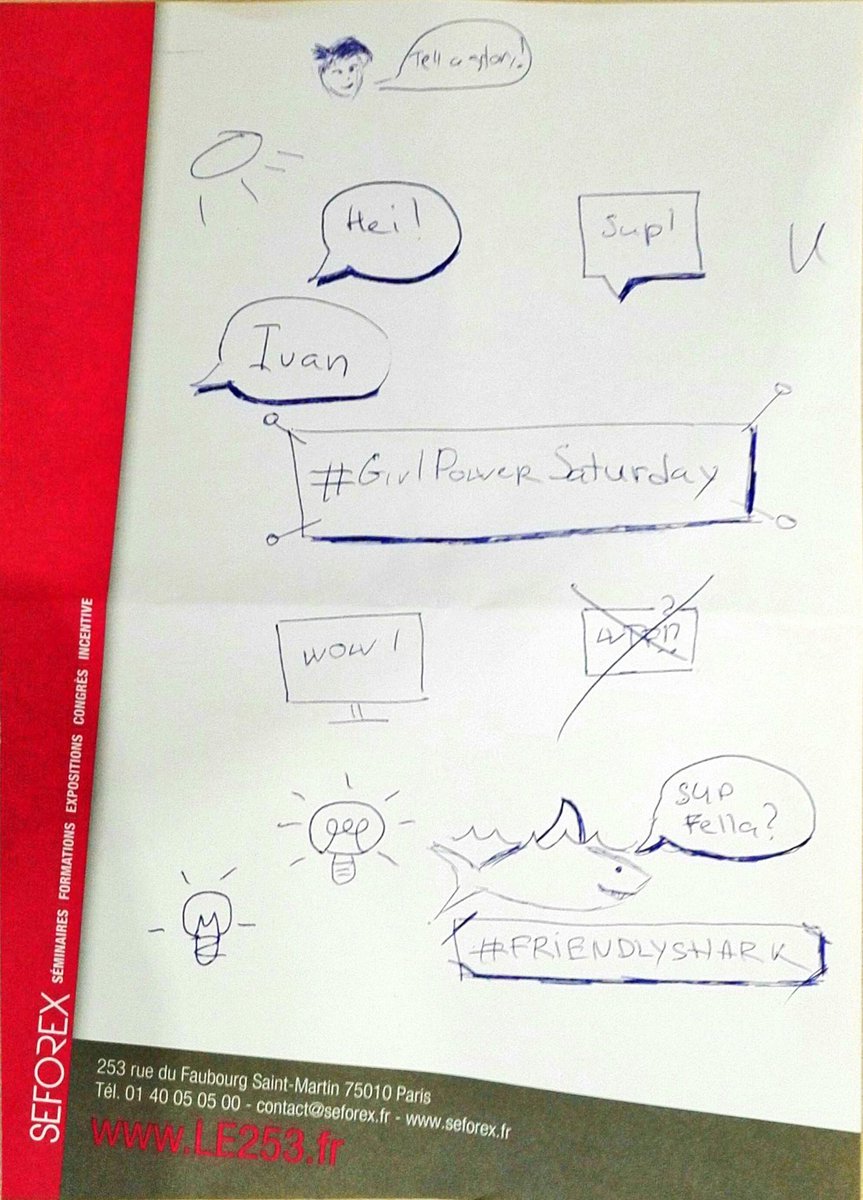 Tell a story!
Hei!
Sup!
U
Ivan
#GirlPowerSaturday
WOW!
SUP
Fella?
#FRIENDLYSHARK
SEFOREX SÉMINAIRES FORMATIONS EXPOSITIONS CONGRÈS INCENTIVE
253 rue du Faubourg Saint-Martin 75010 Paris
Tél. 01 40 05 05 00 - contact@seforex.fr - www.seforex.fr
www.LE253.fr